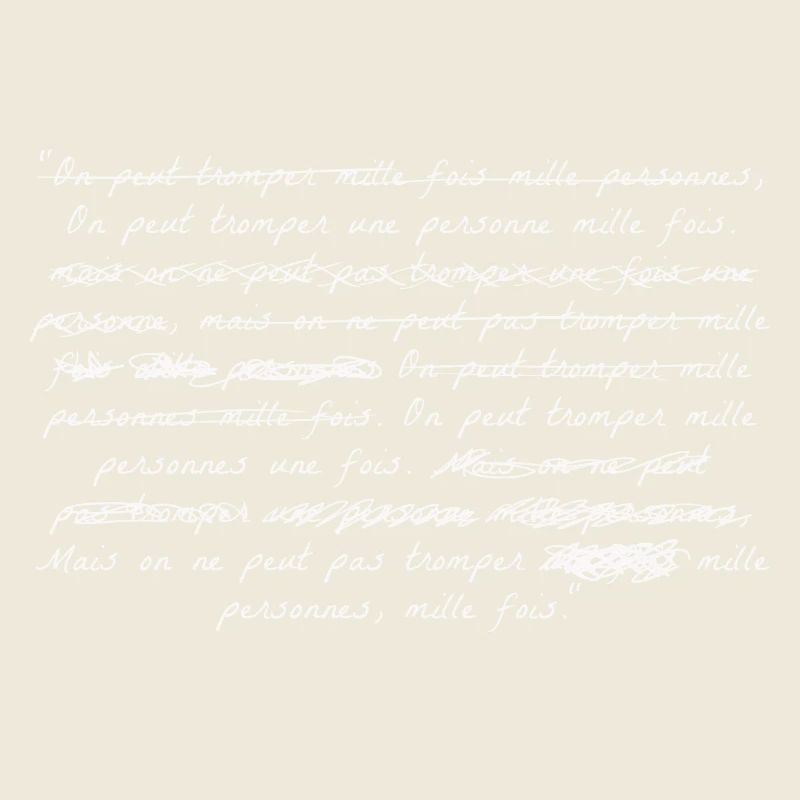 "On peut tromper mille fois mille personnes,
On peut tromper une personne mille fois.
mais on ne peut pas tromper une fois une
personne, mais on ne peut pas tromper mille
fois mille personnes On peut tromper mille
personnes mille fois. On peut tromper mille
personnes une fois. Mais on ne peut
pas tromper une personne mille personnes,
Mais on ne peut pas tromper mille
personnes, mille fois."